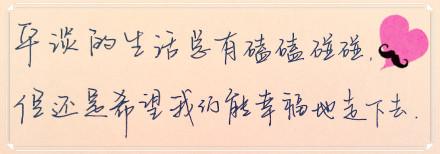 平淡的生活总有磕磕碰碰,
但还是希望我们能幸福地走下去.